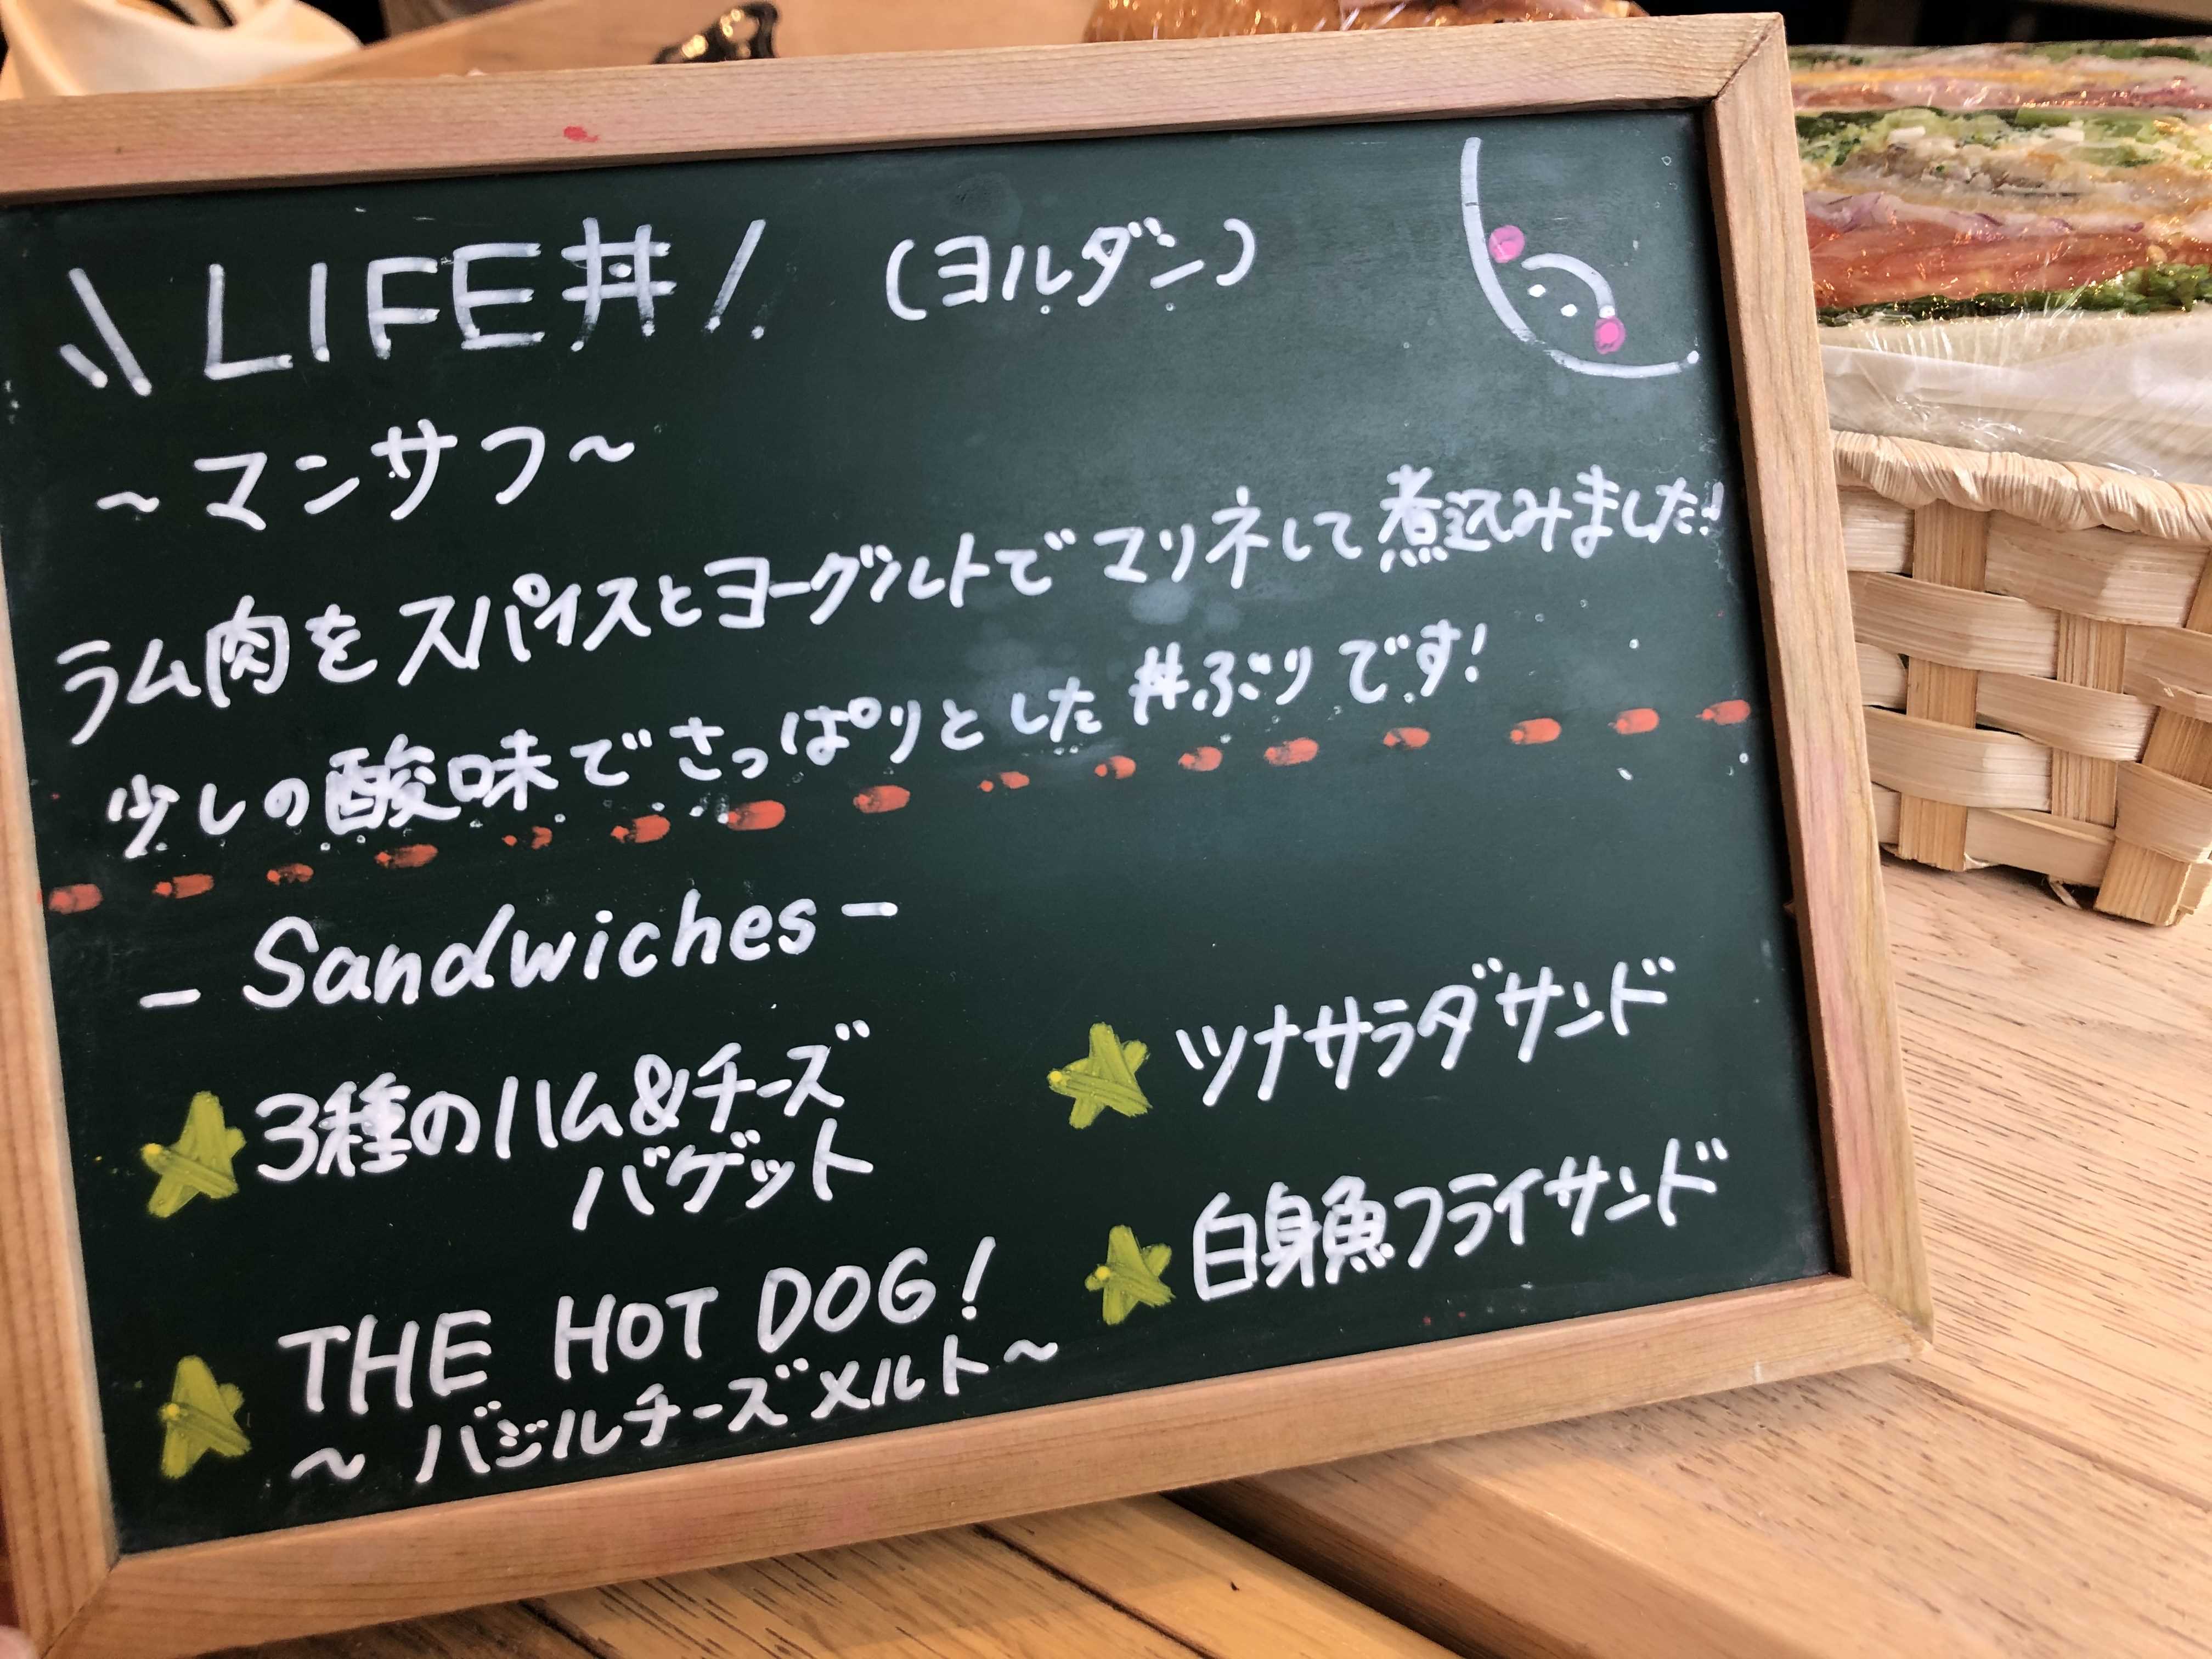 \\LIFE丼/ (ヨルダン)
~マンサフ~
ラム肉をスパイスとヨーグルトでマリネして煮込みました!!
少しの酸味でさっぱりとした丼ぶりです!
- Sandwiches -
3種のハム&チーズ
バゲット
THE HOT DOG!
~バジルチーズメルト~
ツナサラダサンド
白身魚フライサンド